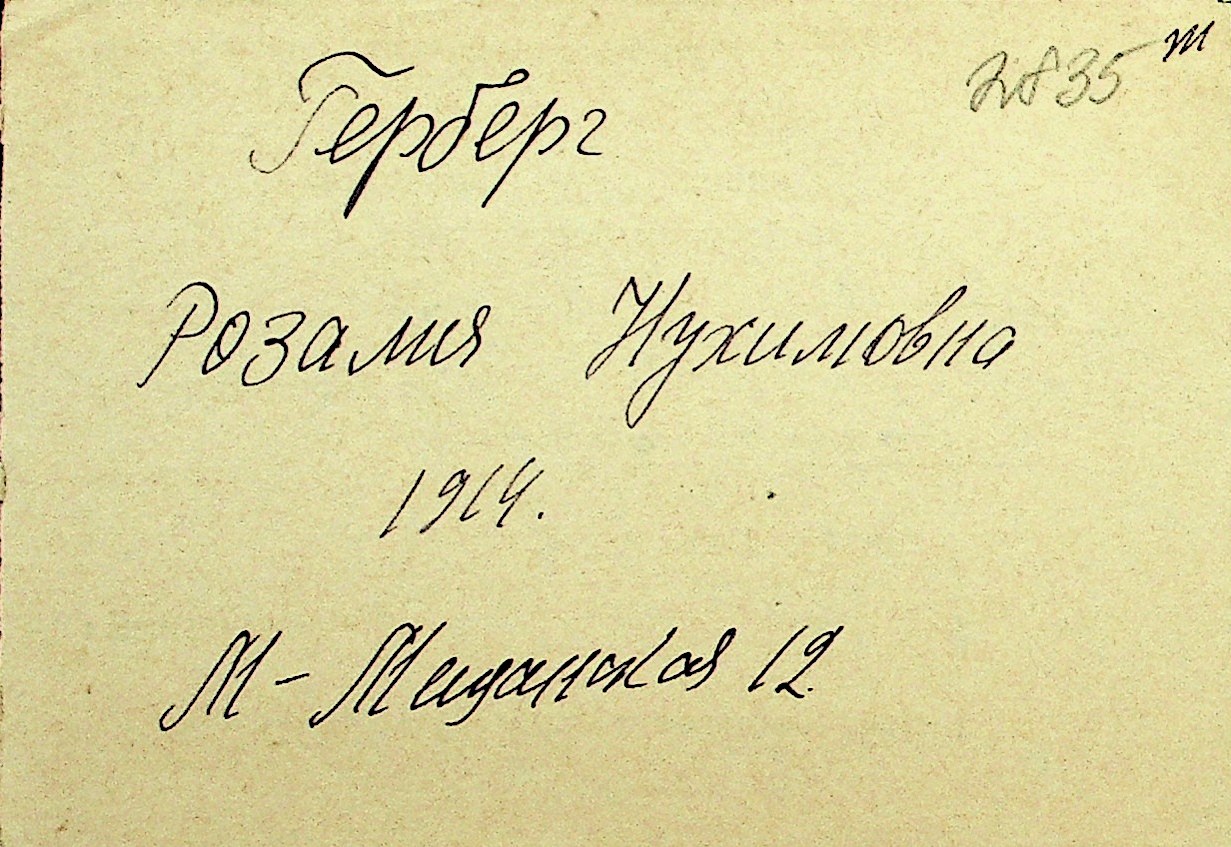 т
Герберг
Розалия Нухимовна
1914.
М-Мещанская 12.